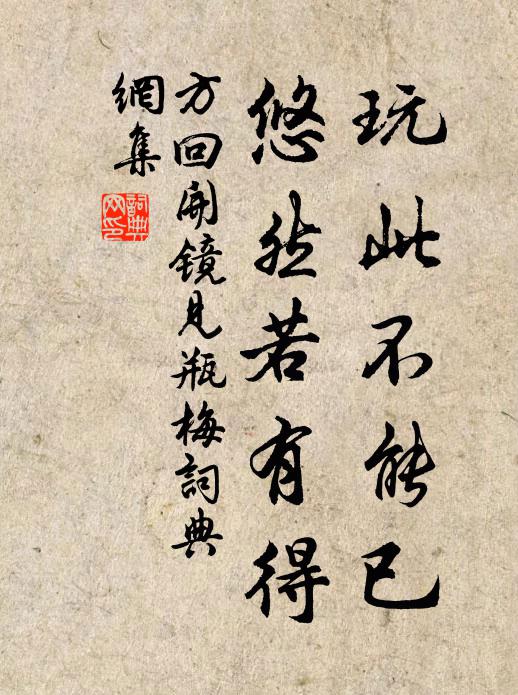 玩此不能已
悠然若有得
方回開鏡見瓶梅詞典
網集
詞典
网印